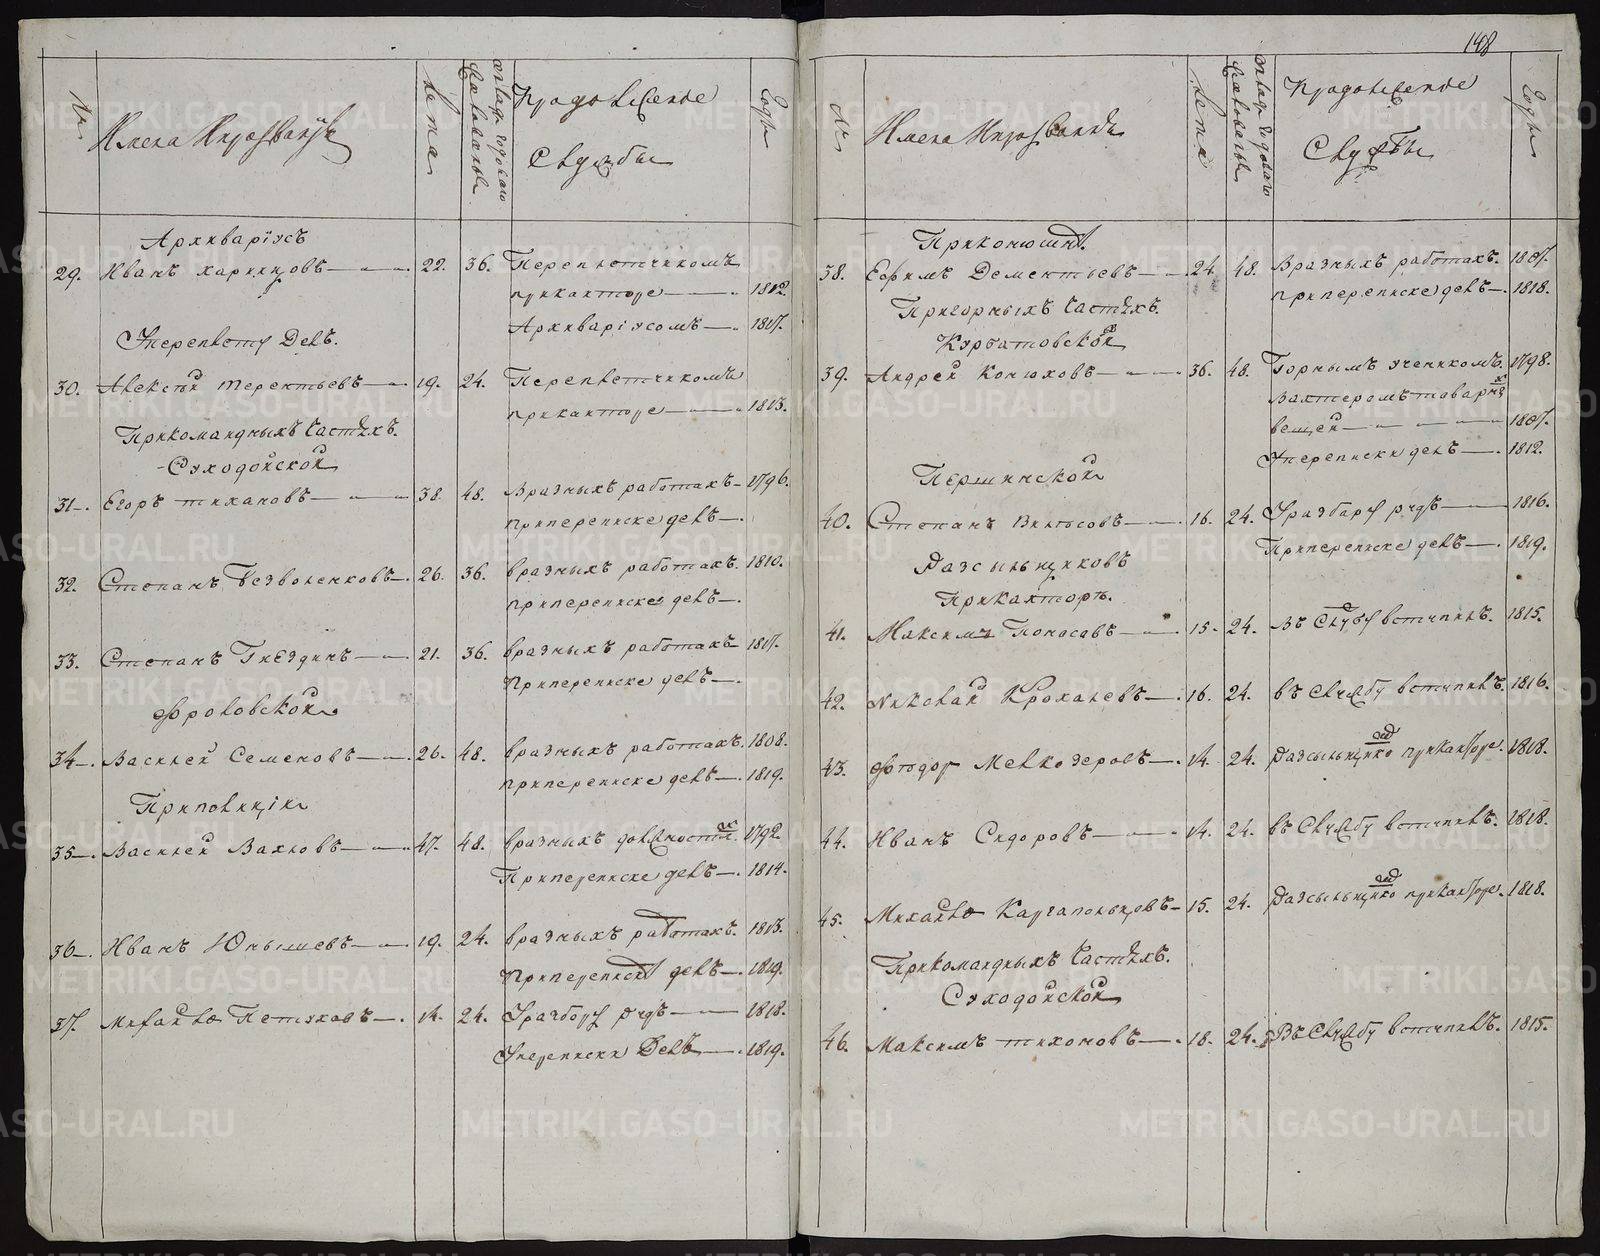 №
Имена Ипрозваніи
Лета
окладъ годоваго жалованья
Продолженіе
Службы
Годы
Архиваріусъ
29. Иванъ харинцовъ 22. 36. Переплетчикомъ
приканторе 1812.
Архиваріусомъ 1817.
Упереплету Делъ.
30. Алексѣй терентьевъ 19. 24. Переплетчикомъ
приканторе 1813.
Прикомандныхъ Частяхъ.
Суходойской
31. Егоръ тихановъ 38. 48. Вразныхъ работахъ 1796.
припереписке делъ
32. Степанъ Безволенковъ 26. 36. вразныхъ работахъ. 1810.
припереписке делъ
33. Степанъ Гнездинъ 21. 36. вразныхъ работахъ 1817.
припереписке делъ
Фроловской
34. Василей Семеновъ 26. 48. вразныхъ работахъ. 1808.
припереписке делъ 1819.
Приполиціи
35. Василей Вахловъ 47. 48. вразныхъ должностях. 1792.
Припереписке делъ 1814.
36. Иванъ Юнышевъ 19. 24. вразныхъ работахъ. 1813.
Приперепискѣ делъ 1819.
37. Михайло Петуховъ 14. 24. Уразбору рудъ 1818.
Упереписки Делъ 1819.
148
№
Имена Ипрозваніи
Лета
окладъ годоваго жалованья
Продолженіе
Службы
Годы
Приконюшнѣ.
38. Ефимъ Дементьевъ 24. 48. Вразныхъ работахъ. 1807.
припереписке делъ 1818.
Пригорныхъ Частяхъ.
Курбатовской
39. Андрей Конюховъ 36. 48. Горнымъ ученикомъ. 1798.
Вахтеромъ товарных
вещей 1807.
Упереписки делъ 1812.
Першинской
40. Степанъ Вилосовъ 16. 24. Уразбору рудъ 1816.
Припереписке делъ 1819.
Разсыльщиковъ
Приканторѣ.
41. Максимъ Поносовъ 15. 24. Въ Службу вступилъ. 1815.
42. Николай Крохалевъ 16. 24. въ Службу вступилъ. 1816.
43. Фтодор Мелкозеровъ 14. 24. Разсыльщиком приканторе. 1818.
44. Иванъ Сидоровъ 14. 24. въ Службу вступилъ. 1818.
45. Михайло Каргапольцовъ 15. 24. Разсыльщиком приканторе. 1818.
Прикомандныхъ Частяхъ.
Суходойской
46. Максимъ тихоновъ 18. 24. Въ Службу вступилъ. 1815.